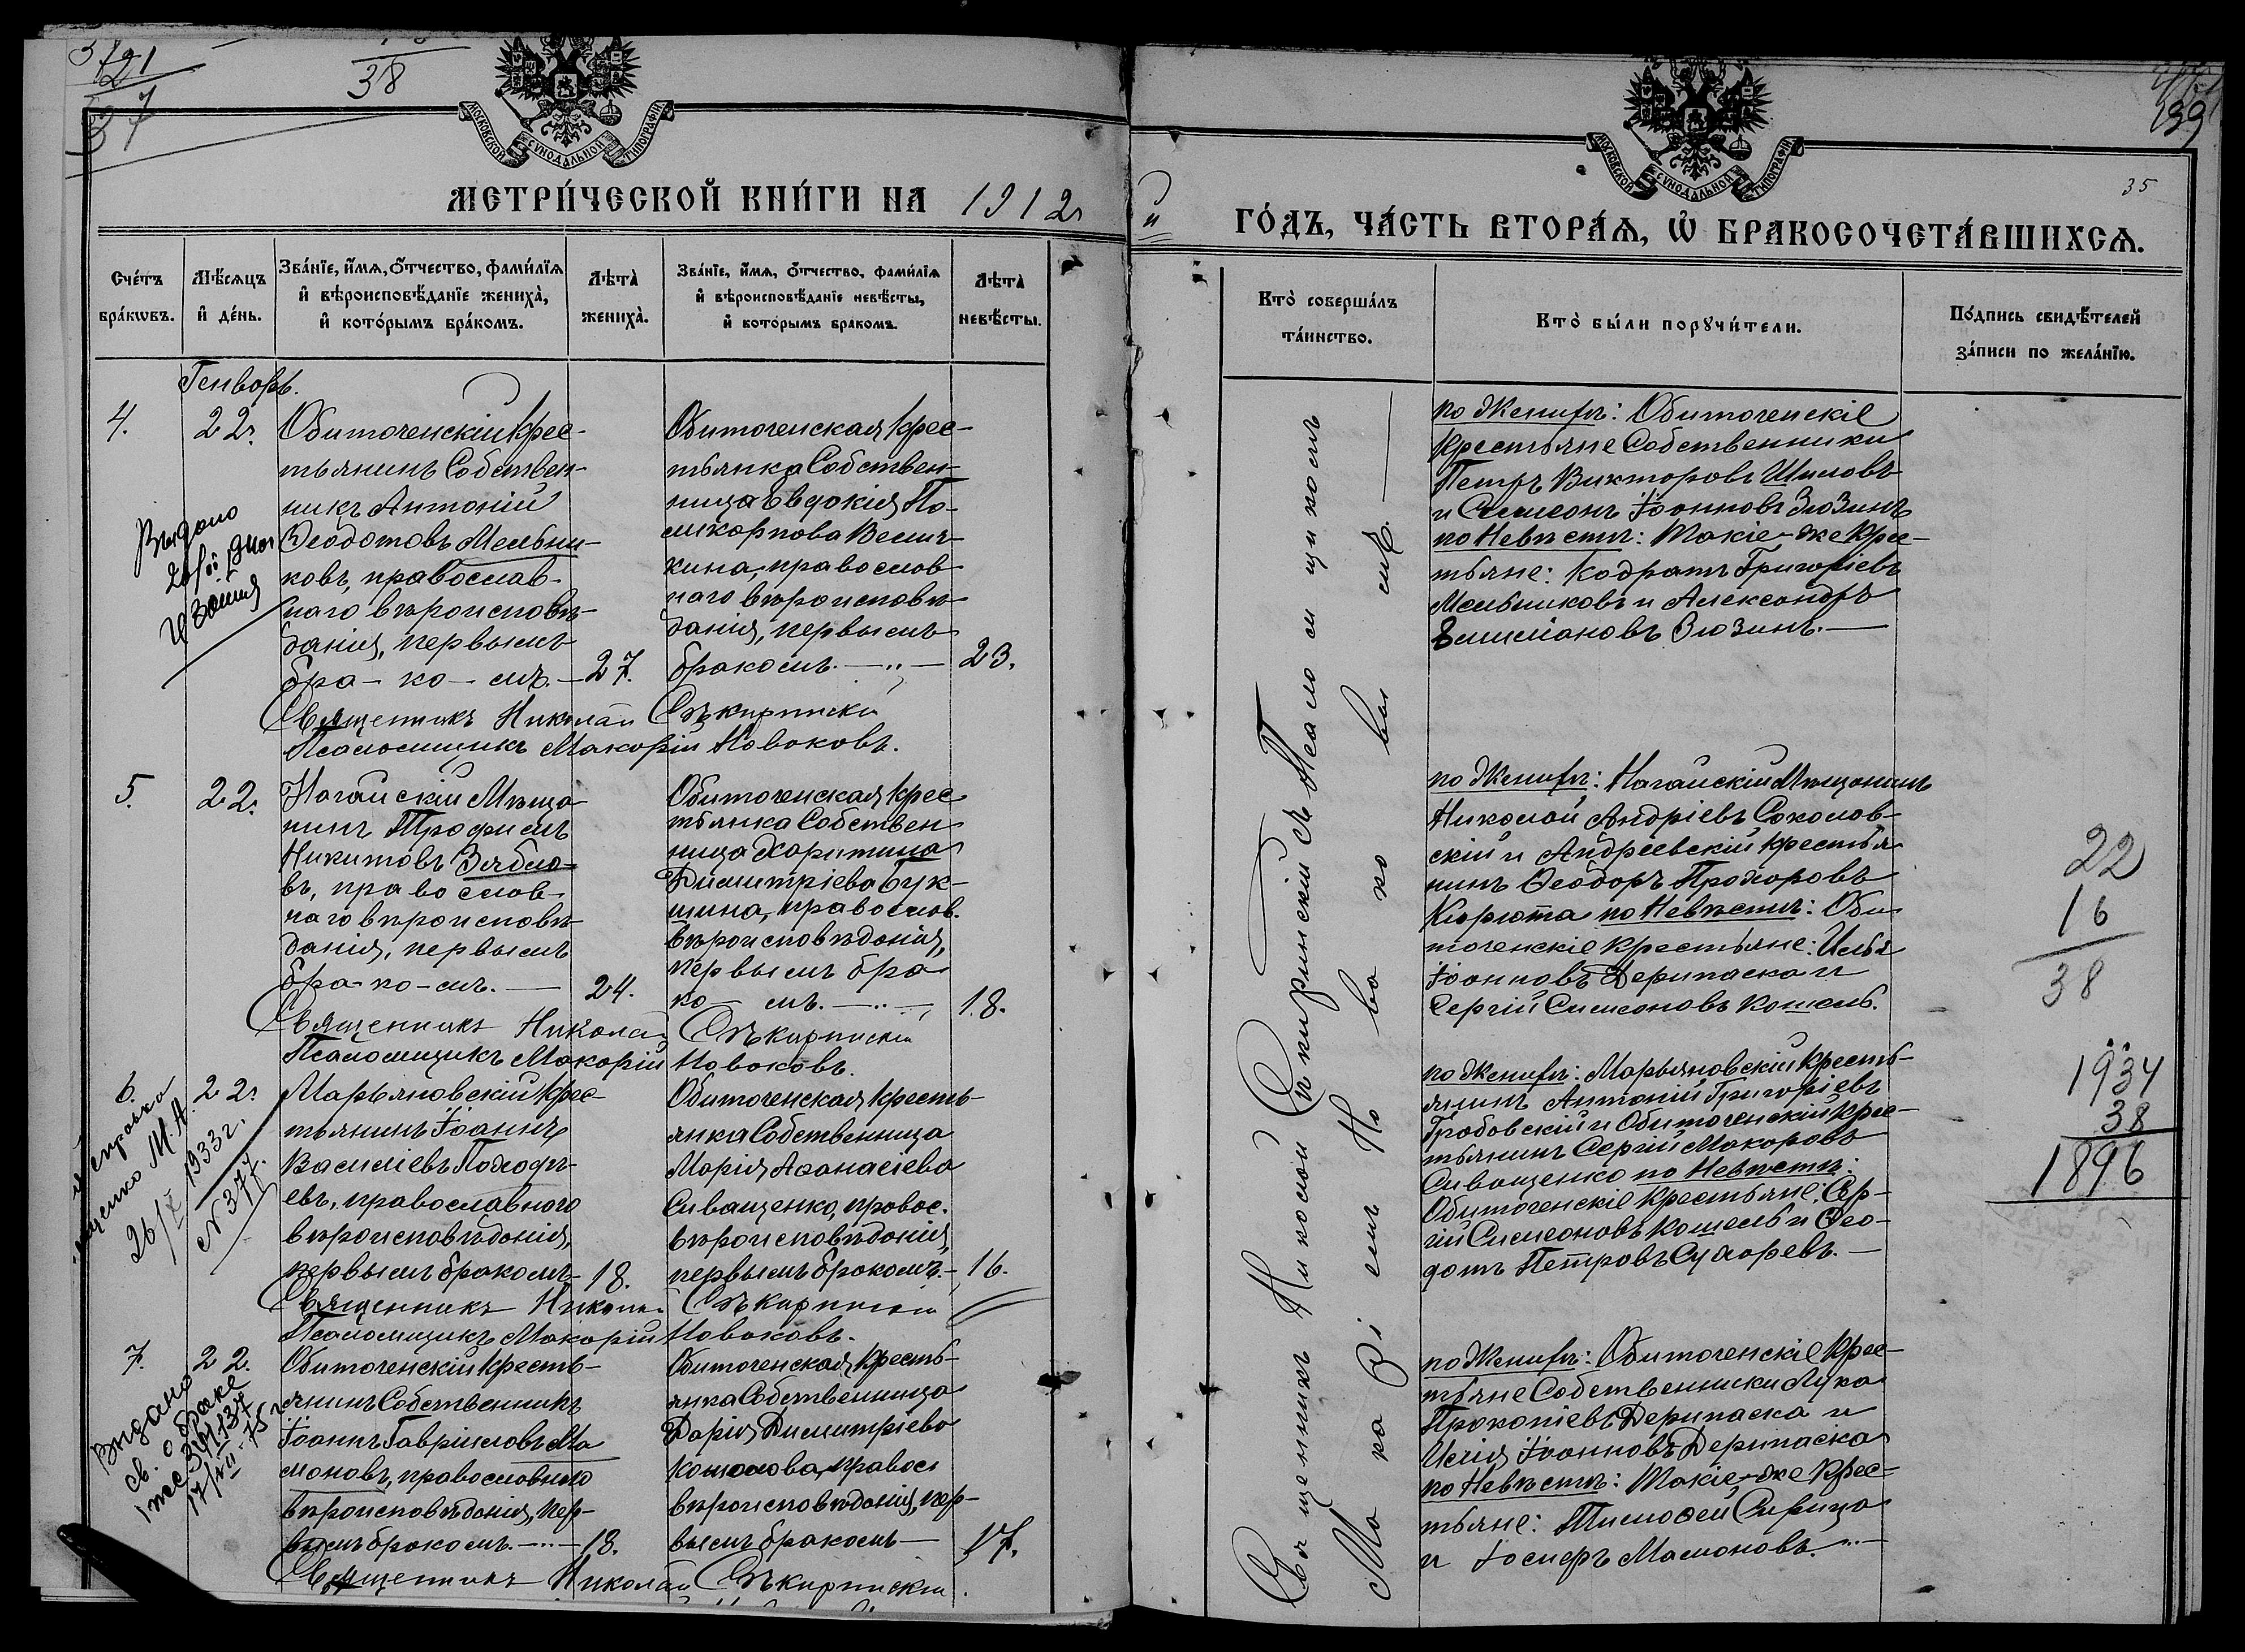 38
37
МОСКОВСКОЙ СѴНОДАЛЬНОЙ ТИПОГРАФІИ
МЕТРИ́ЧЕСКОЙ КНИ́ГИ НА 1912
Сче́тъ бра́кѡвъ.
Мѣ́сѧцъ и҆ де́нь.
Зва́нїе, и҆́мѧ, ѻ҆́тчество, фами́лїѧ и҆ вѣроисповѣ́данїе жениха̀, и҆ кото́рымъ бра́комъ.
Лѣта̀ жениха̀.
Зва́нїе, и҆́мѧ, ѻ҆́тчество, фами́лїѧ и҆ вѣроисповѣ́данїе невѣ́сты, и҆ кото́рымъ бра́комъ.
Лѣта̀ невѣ́сты.
Генворь.
4.
22.
Обиточенскій Крес-
тьянинъ Собствен-
никъ Антоній
Ѳеодотовъ Мельни-
ковъ, православ-
наго вѣроисповѣ-
данія, первымъ
бра-ко-мъ.— 27.
Обиточенская Крес-
тьянка Собствен-
ница Евдокія По-
ликорпова Велич-
кина, православ
наго вѣроисповѣ
данія, первымъ
бракомъ.—„— 23.
Выдано
Священникъ Николай Сѣкиринскій
Псаломщикъ Макарій Новаковъ.
5.
22.
Ногайскій Мѣща
нинъ Трофимъ
Никитовъ Зябло-
въ, православ-
наго вѣроисповѣ-
данія, первымъ
бра-ко-мъ.— 24.
Обиточенская Крес
тьянка Собствен
ница Харитина
Димитріева Бук-
шина, православ.
вѣроисповѣданія,
первымъ бра
ко—мъ.—„— 18.
Священникъ Николай Сѣкиринскій
Псаломщикъ Макарій Новаковъ.
6.
22.
Марьяновскій Крес-
тьянинъ Іоаннъ
Василіевъ
евъ, православного
вѣроисповѣданія,
первымъ бракомъ- 18.
Обиточенская Кресть-
янка Собственница
Марія Аѳанасіева
Сиващенко, правос.
вѣроисповѣданія,
первымъ бракомъ.- 16.
справка
М. А.
1933 г.
N 377.
Священникъ Николай Сѣкиринскій
Псаломщикъ Макарій Новаковъ.
7.
22.
Обиточенскій Кресть-
янинъ Собственникъ
Іоаннъ Гавріиловъ Ма
моновъ, православного
вѣроисповѣданія, пер-
вымъ бракомъ.—„— 18.
Обиточенская Кресть-
янка Собственница
Дарія Димитріева
правос
вѣроисповѣданія, пер-
вымъ бракомъ— 17.
Выдано
св. о браке
Священникъ Николай Сѣкиринскій.
139
35
МОСКОВСКОЙ СѴНОДАЛЬНОЙ ТИПОГРАФІИ
й ГО́ДЪ, ЧА́СТЬ ВТОРА́Ѧ, Ѡ҆ БРАКОСОЧЕТА́ВШИХСѦ.
Кто̀ соверша́лъ та́инство.
Кто̀ бы́ли порꙋчи́тели.
По́дпись свидѣ́телей за́писи по жела́нїю.
Священникъ Николай Сѣкиринскій съ Псаломщикомъ
Макаріемъ Новаковымъ.
по Женихѣ: Обиточенскіе
Крестьяне Собственники
Петръ Викторовъ Шиловъ
и Симеонъ Іоанновъ Зюзинъ
по Невѣстѣ: Такіе-же Крес-
тьяне: Кодратъ Григоріевъ
Мельниковъ и Александръ
Емиліановъ Зюзинъ.—
по Женихѣ: Ногайскій Мѣщанинъ
Николай Андріевъ Соколов-
скій и Андреевскій крестья
нинъ Ѳеодоръ Прохоровъ
Кирюта по Невѣстѣ: Оби
точенскіе крестьяне: Илья
Іоанновъ Дерипаска и
Сергій Симеоновъ Кошель.
по Женихѣ: Марьяновскій Кресть-
янинъ Антоній Григоріевъ
Грабовскій и Обиточенскій Крес-
тьянинъ Сергій Макаровъ
Сиващенко по Невѣстѣ:
Обиточенскіе крестьяне: Сер-
гій Симеоновъ Кошель и Ѳео-
дотъ Петровъ Сухаревъ.—
по Женихѣ: Обиточенскіе Крес-
тьяне Собственники Лука
Прокопіевъ Дерипаска и
Илія Іоанновъ Дерипаска
по Невѣстѣ: Такіе-же Крес-
тьяне: Тимоѳей Сирица
и Іосифъ Мамоновъ.—
22
16
38
1934
38
1896